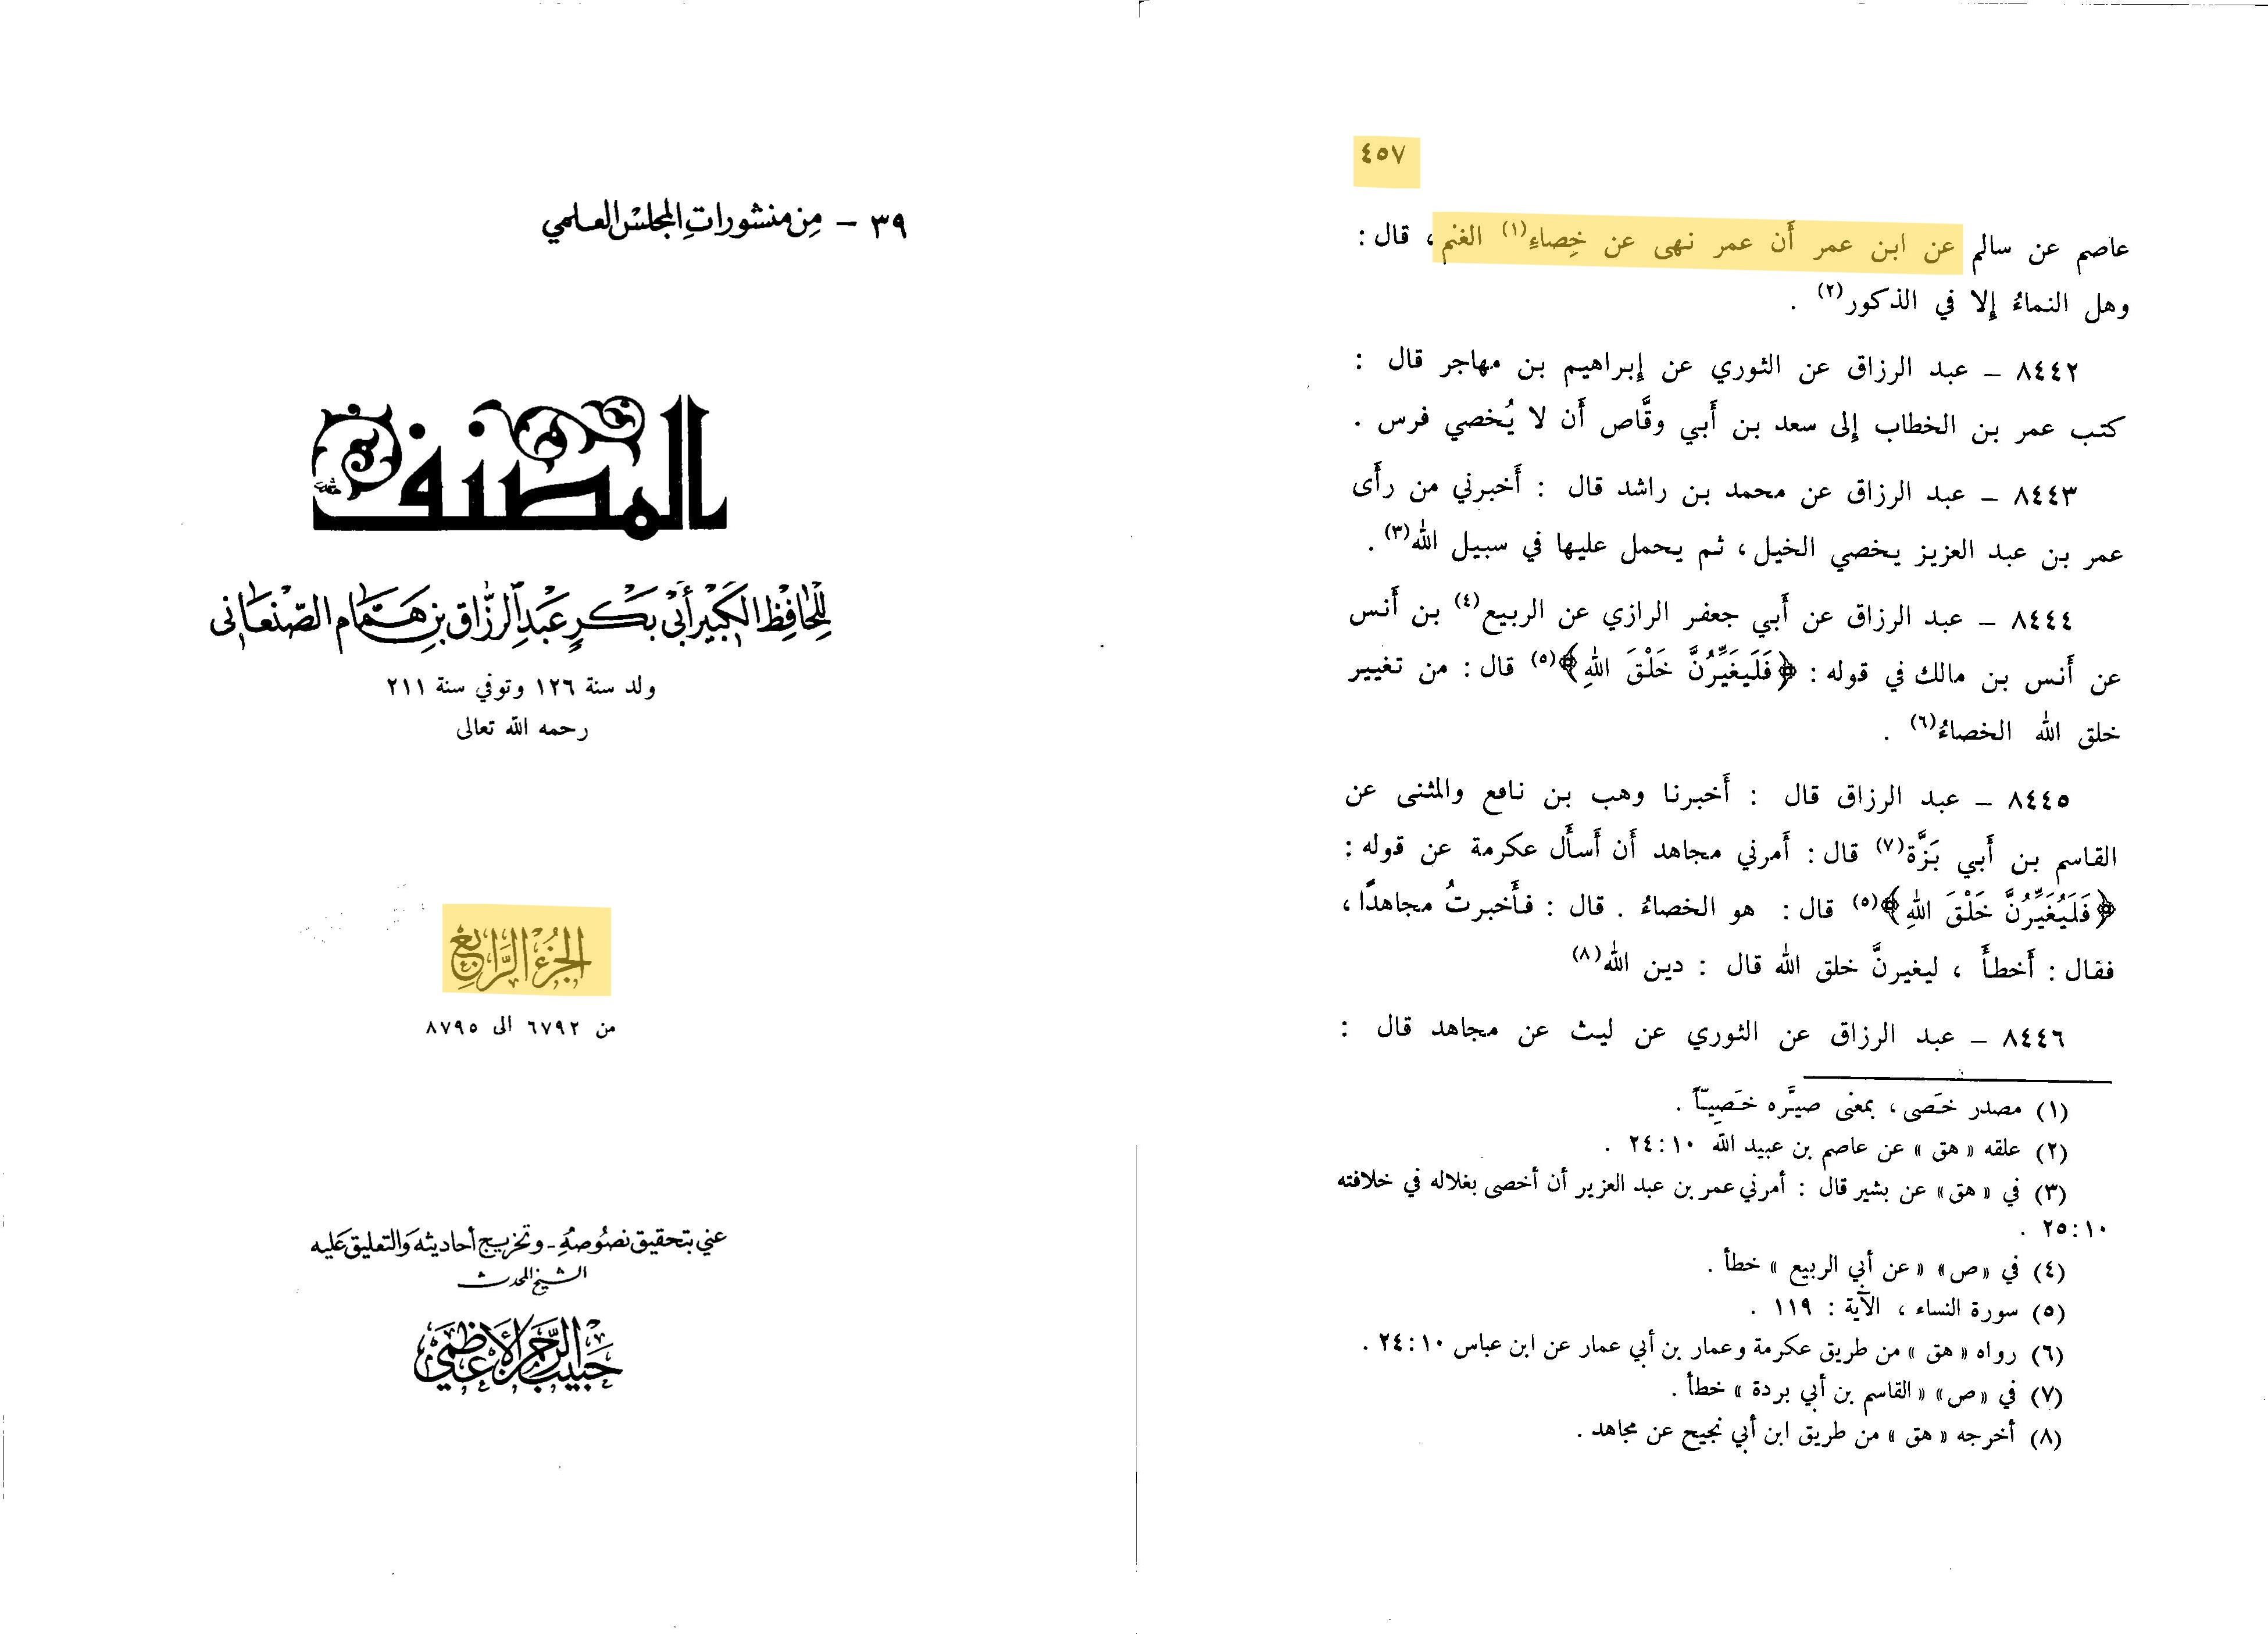 ٤٥٧
عاصم عن سالم عن ابن عمر أَن عمر نهى عن خِصاءِ(١) الغنم، قال:
وهل النماءُ إِلا في الذكور(٢) .
٨٤٤٢ – عبد الرزاق عن الثوري عن إِبراهيم بن مهاجر قال :
كتب عمر بن الخطاب إِلى سعد بن أَبي وقَّاص أَن لا يُخصي فرس .
٨٤٤٣ – عبد الرزاق عن محمد بن راشد قال : أَخبرني من رأَى
عمر بن عبد العزيز يخصي الخيل، ثم يحمل عليها في سبيل الله(٣) .
٨٤٤٤ – عبد الرزاق عن أَبي جعفر الرازي عن الربيع(٤) بن أَنس
عن أَنس بن مالك في قوله: ﴿فَلَيغَيِّرُنَّ خَلْقَ اللهِ﴾(٥) قال: من تغيير
خلق الله الخصاءُ(٦) .
٨٤٤٥ – عبد الرزاق قال : أَخبرنا وهب بن نافع والمثنى عن
القاسم بن أَبي بَزَّة(٧) قال: أَمرني مجاهد أَن أَسأَل عكرمة عن قوله:
﴿فَلَيُغَيِّرُنَّ خَلْقَ اللهِ﴾(٥) قال: هو الخصاءُ . قال : فأَخبرتُ مجاهدًا،
فقال: أَخطأَ ، ليغيرنَّ خلق الله قال : دين الله(٨)
٨٤٤٦ – عبد الرزاق عن الثوري عن ليث عن مجاهد قال :
(١) مصدر خَصَى، بمعنى صيَّره خَصِيّاً .
(٢) علقه « هق » عن عاصم بن عبيد الله ٢٤:١٠ .
(٣) في « هق» عن بشير قال : أمرني عمر بن عبد العزير أن أخصى بغلاله في خلافته
٢٥:١٠ .
(٤) في «ص» « عن أبي الربيع » خطأ .
(٥) سورة النساء ، الآية : ١١٩ .
(٦) رواه « هق » من طريق عكرمة وعمار بن أبي عمار عن ابن عباس ٢٤:١٠ .
(٧) في «ص» « القاسم بن أبي بردة » خطأ .
(٨) أخرجه « هق » من طريق ابن أبي نجيح عن مجاهد .
٣٩ – مِن منشورات المجلس العلمي
المصنف
للحافظ الكبير أبي بكر عبد الرزاق بن همام الصنعاني
ولد سنة ١٢٦ وتوفي سنة ٢١١
رحمه الله تعالى
الجزء الرابع
من ٦٧٩٢ الى ٨٧٩٥
عني بتحقيق نصوصه - وتخريج أحاديثه والتعليق عليه
الشيخ المحدث
حبيب الرحمن الأعظمي